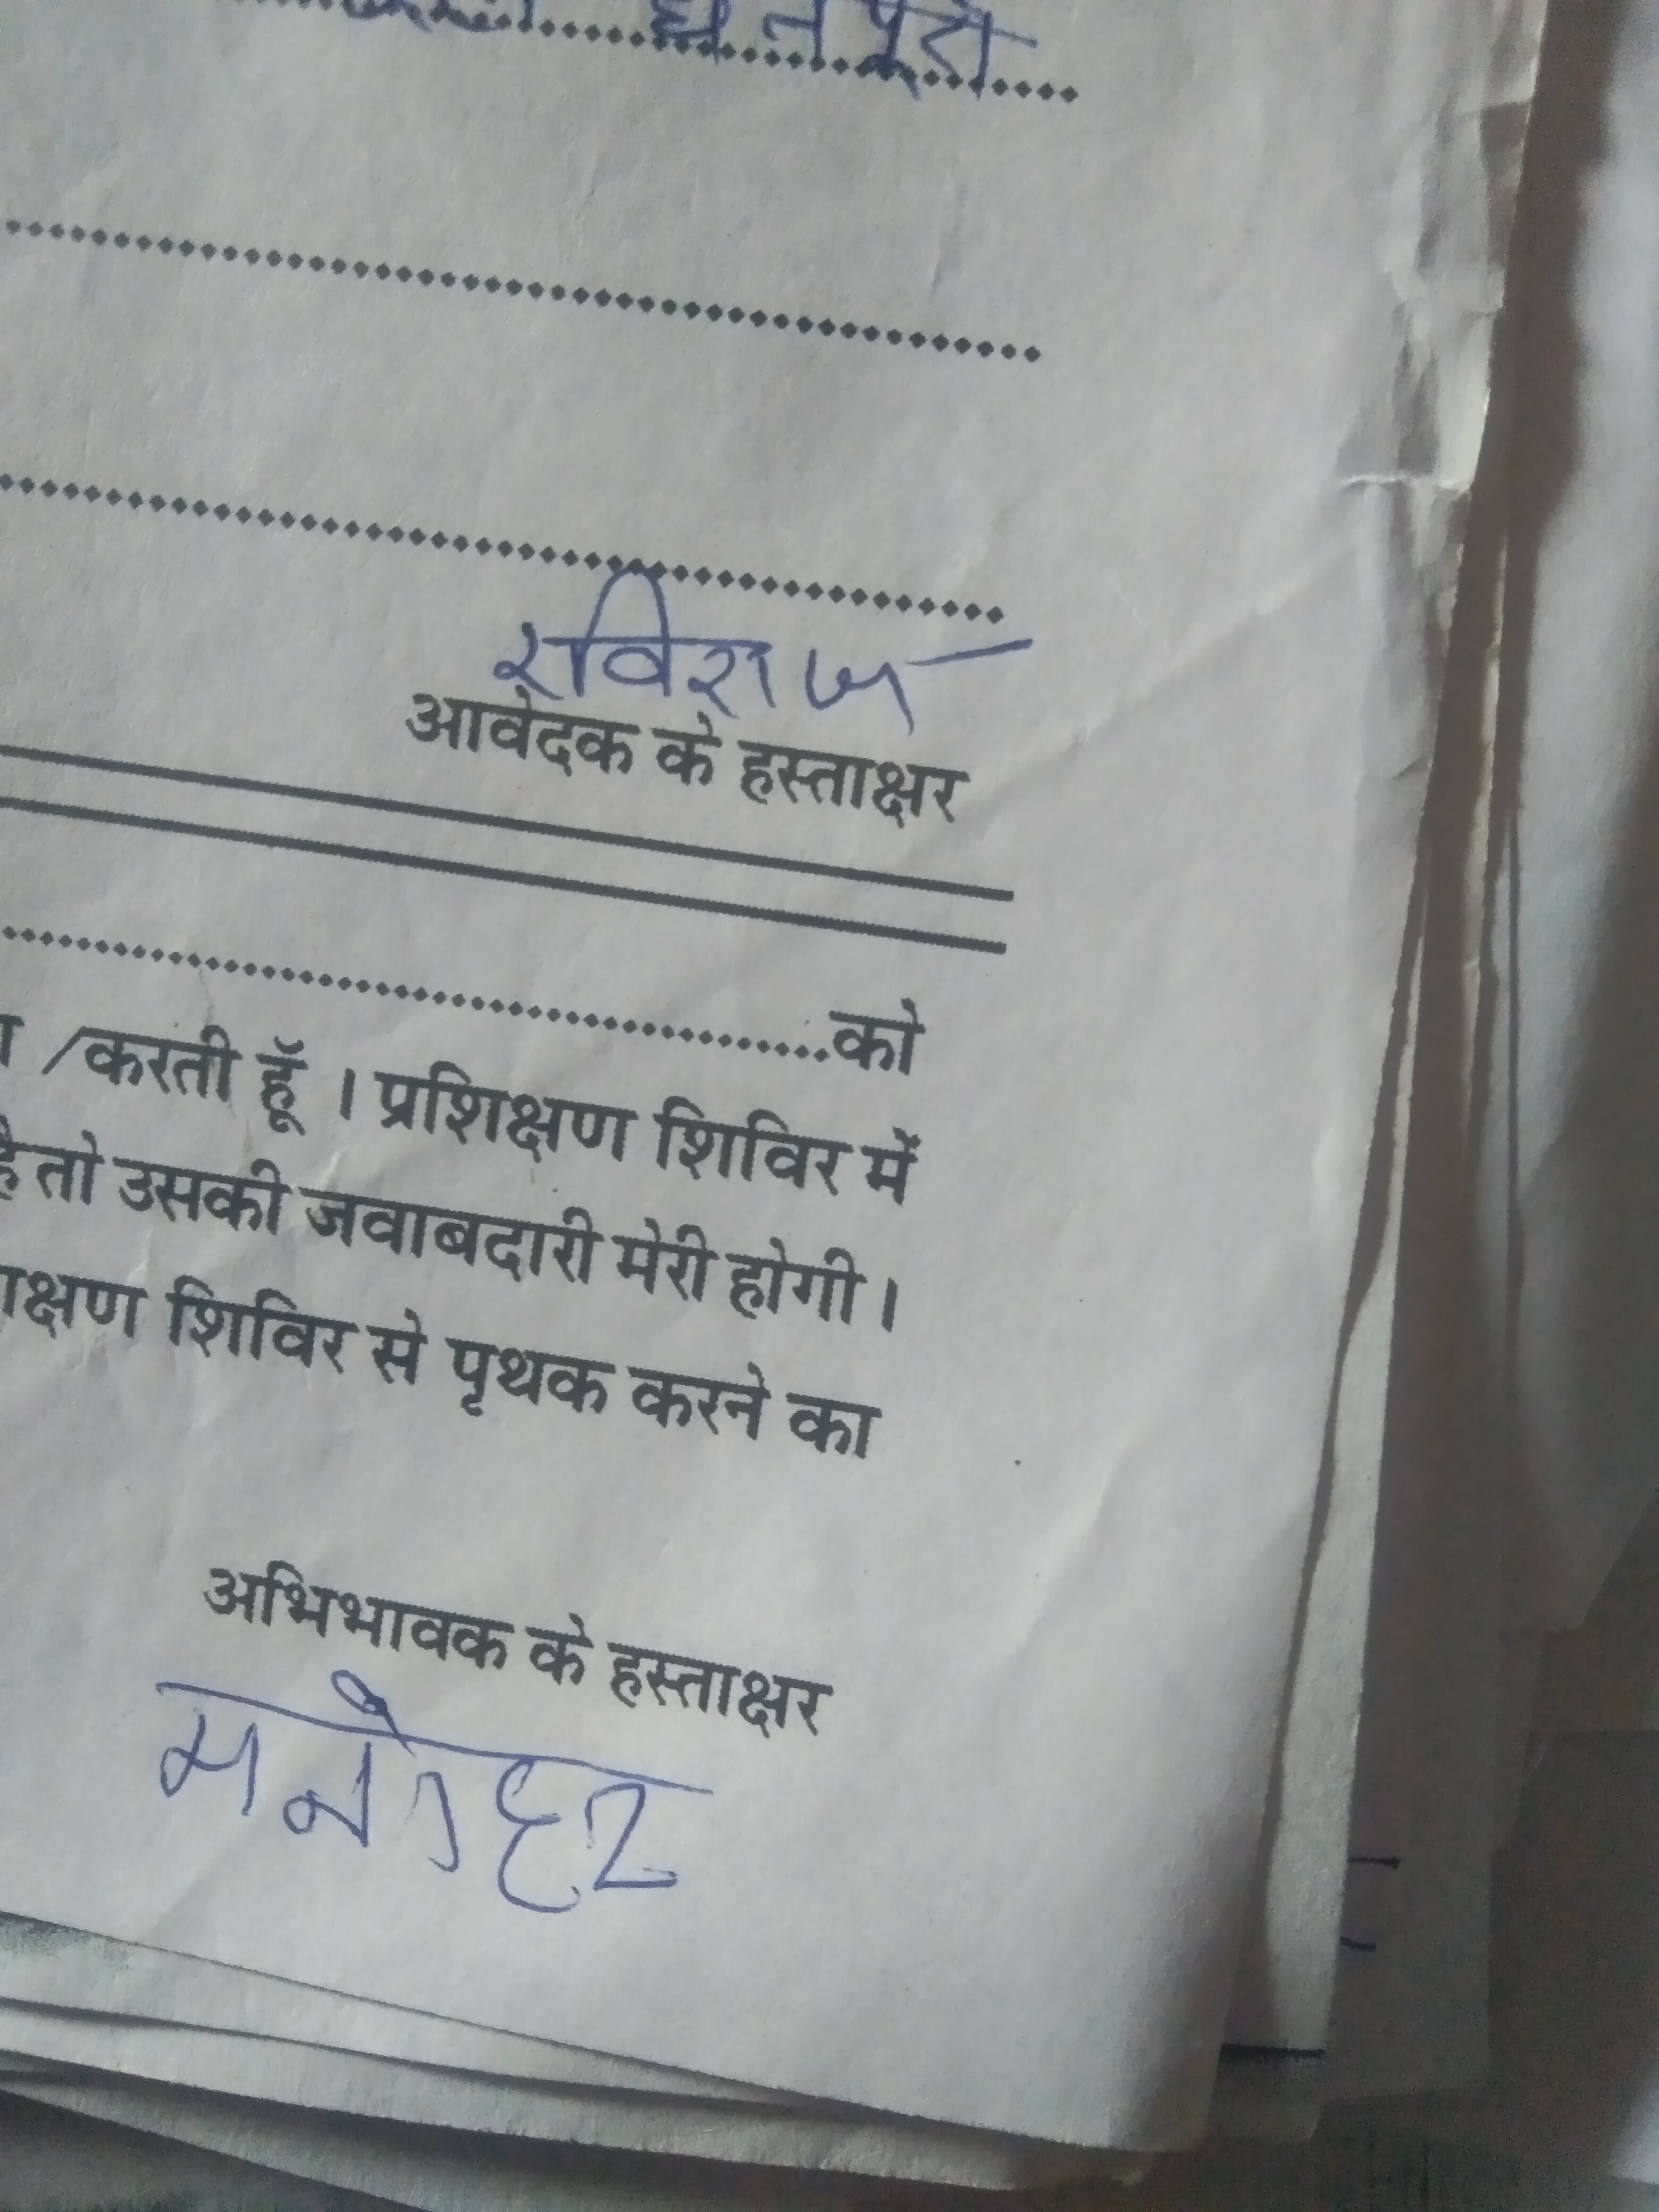 धनपुरी
रविराज
आवेदक के हस्ताक्षर
को
/करती हूँ । प्रशिक्षण शिविर में
है तो उसकी जवाबदारी मेरी होगी ।
शिविर से पृथक करने का
अभिभावक के हस्ताक्षर
मनोहर